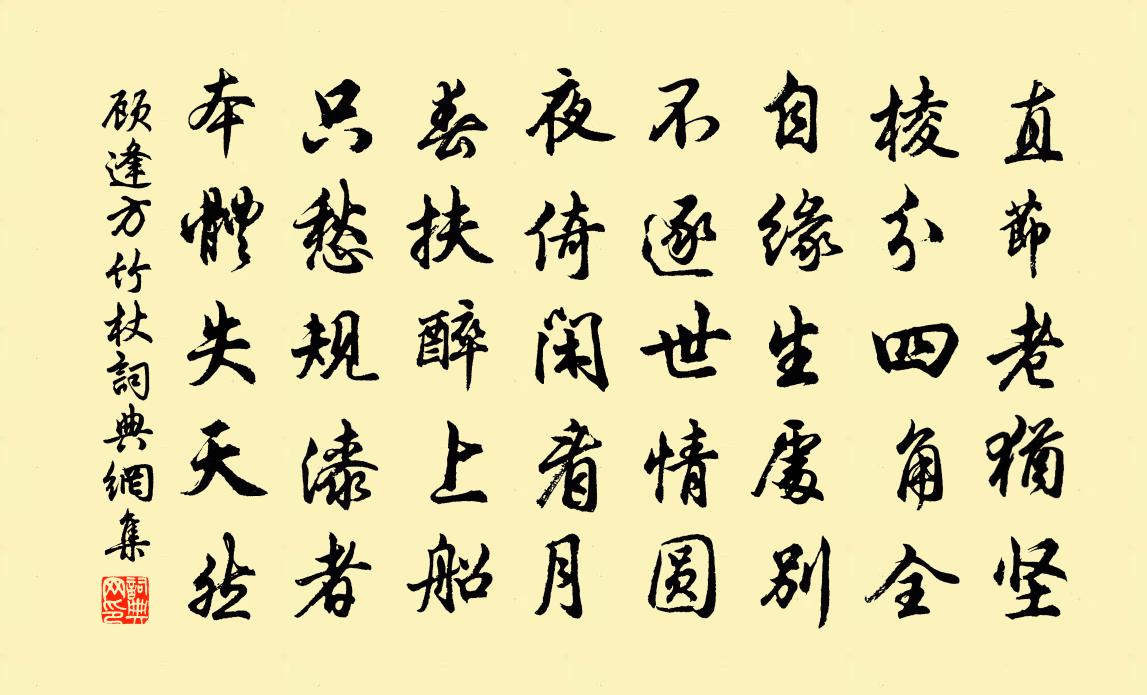 直節老猶坚
棱分四角全
自缘生處别
不逐世情圆
夜倚閑看月
春扶醉上船
只愁规漆者
本體失天然
顾逢方竹杖詞典網集
詞典網印